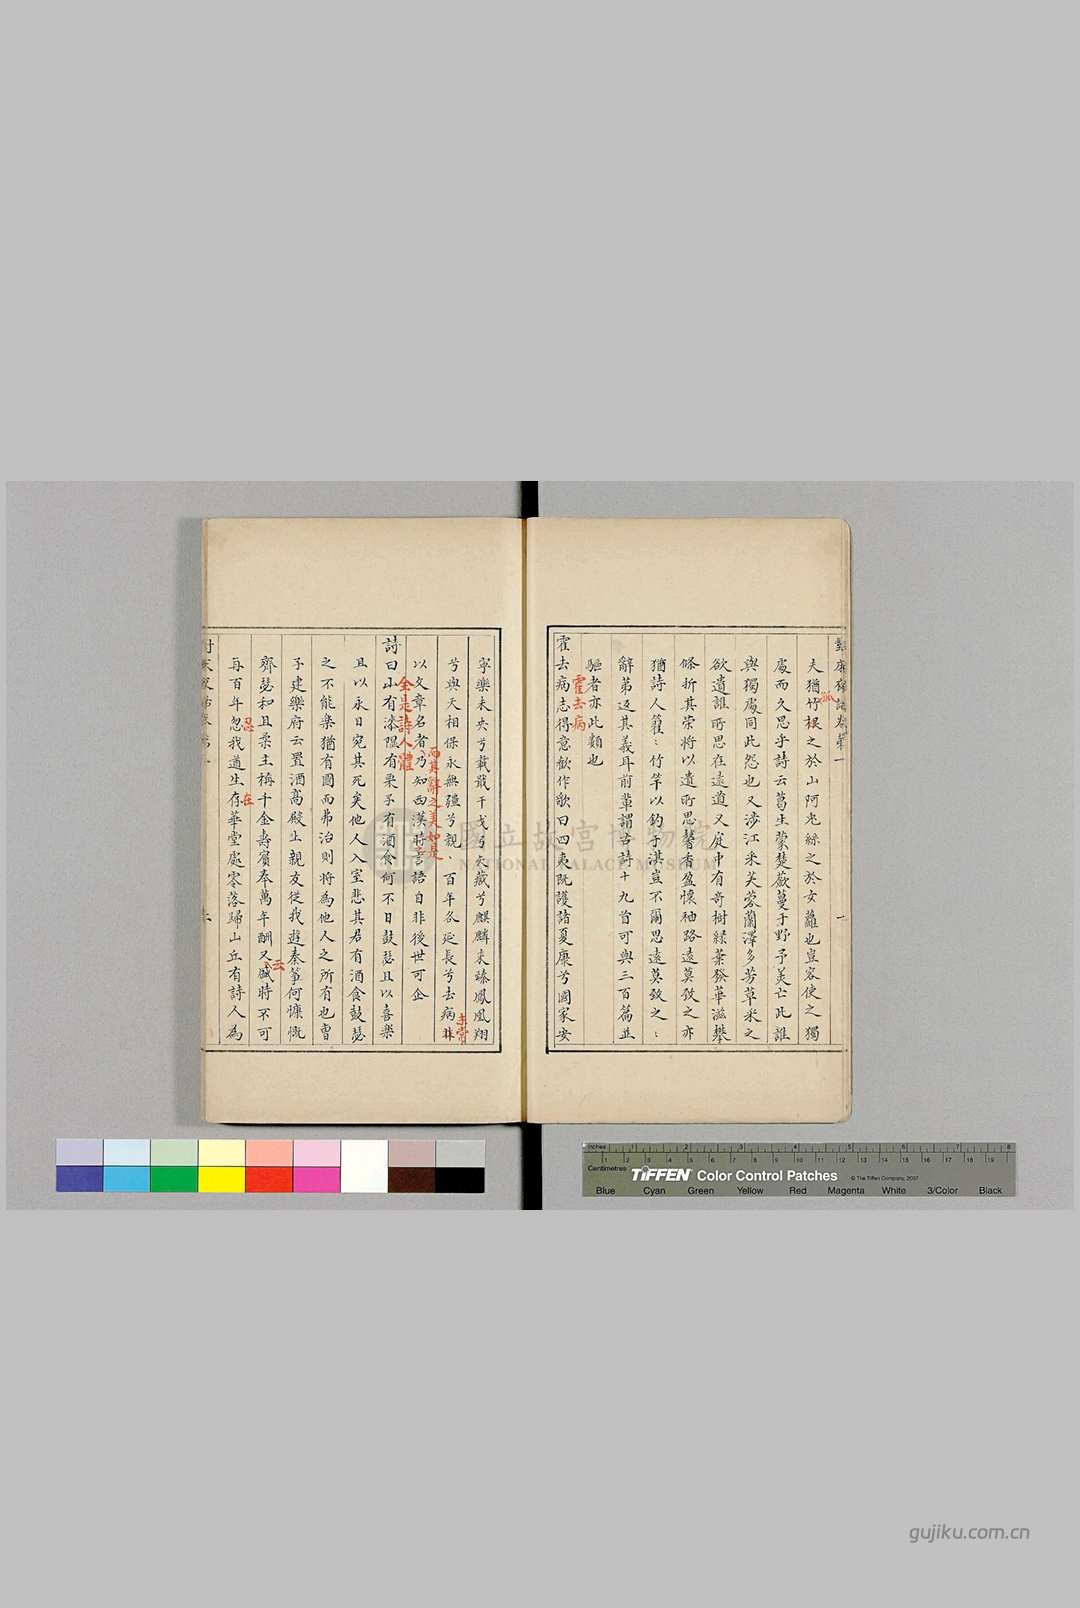 夫猶竹根之於山阿兔絲之於女蘿也豈容使之獨
處而久思乎詩云葛生蒙楚蘞蔓于野予美亡此誰
與獨處同此怨也又涉江采芙蓉蘭澤多芳草采之
欲遺誰所思在遠道又庭中有奇樹綠葉發華滋攀
條折其荣將以遺所思馨香盈懷袖路遠莫致之亦
猶詩人籊〻竹竿以釣于淇豈不爾思遠莫致之〻
辭第返其義耳前輩謂古詩十九首可與三百篇並
驅者亦此類也
霍去病
霍去病志得意歡作歌曰四夷既護諸夏康兮國家安
寧樂未央兮載戢干戈弓矢藏兮麒麟来臻鳳凰翔
兮與天相保永無疆兮親〻百年各延長兮去病
未嘗
以文章名者乃知西漢時言語自非後世可企
而其辭之美如是
全是詩人體
詩曰山有漆隰有栗子有酒食何不日鼓瑟且以喜樂
且以永日宛其死矣他人入室悲其君有酒食鼓瑟
之不能樂猶有國而弗治則將為他人之所有也曹
子建樂府云置酒高殿上親友從我遊秦箏何慷慨
齊瑟和且柔主稱千金壽賓奉萬年酬又
云
盛時不可
再百年忽我遒生存華堂處零落歸山丘有詩人為
忍
在
國立故宮博物院
NATIONAL PALACE MUSEUM
Inches
Centimetres
TIFFEN Color Control Patches
© The Tiffen Company, 2007
Blue Cyan Green Yellow Red Magenta White 3/Color Black
gujiku.com.cn